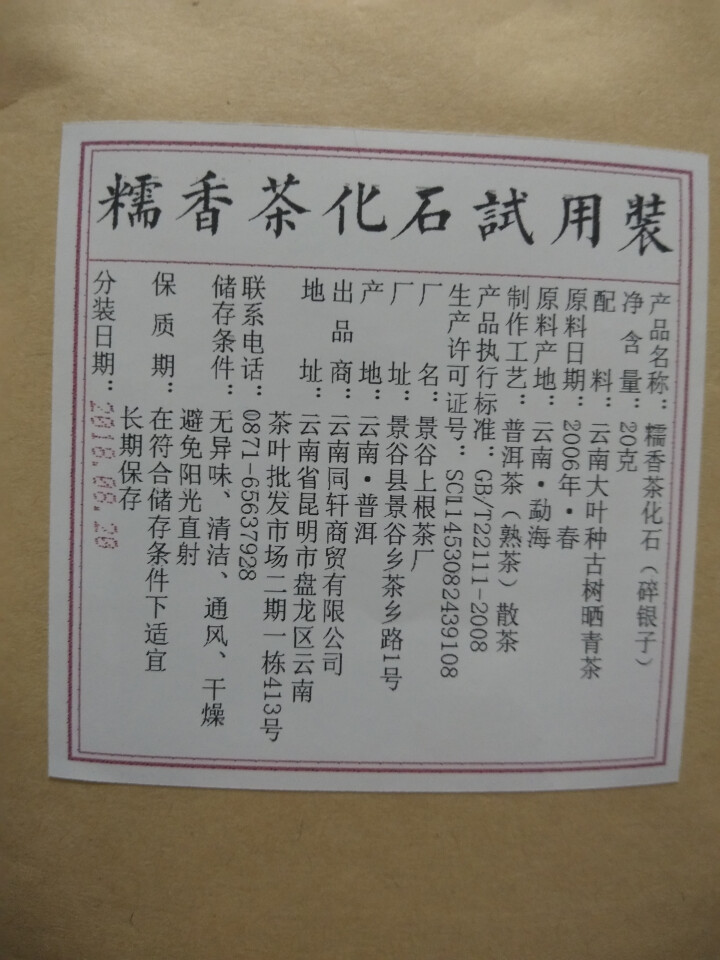 糯香茶化石試用裝
产品名称：糯香茶化石（碎银子）
净含量：20克
配料：云南大叶种古树晒青茶
原料日期：2006年·春
原料产地：云南·勐海
制作工艺：普洱茶（熟茶）散茶
产品执行标准：GB/T22111-2008
生产许可证号：SC11453082439108
厂名：景谷上根茶厂
厂址：景谷县景谷乡茶乡路1号
产地：云南·普洱
出品商：云南同轩商贸有限公司
地址：云南省昆明市盘龙区云南
茶叶批发市场二期一栋413号
联系电话：0871-65637928
储存条件：无异味、清洁、通风、干燥
避免阳光直射
保质期：在符合储存条件下适宜
长期保存
分装日期：2018.08.20